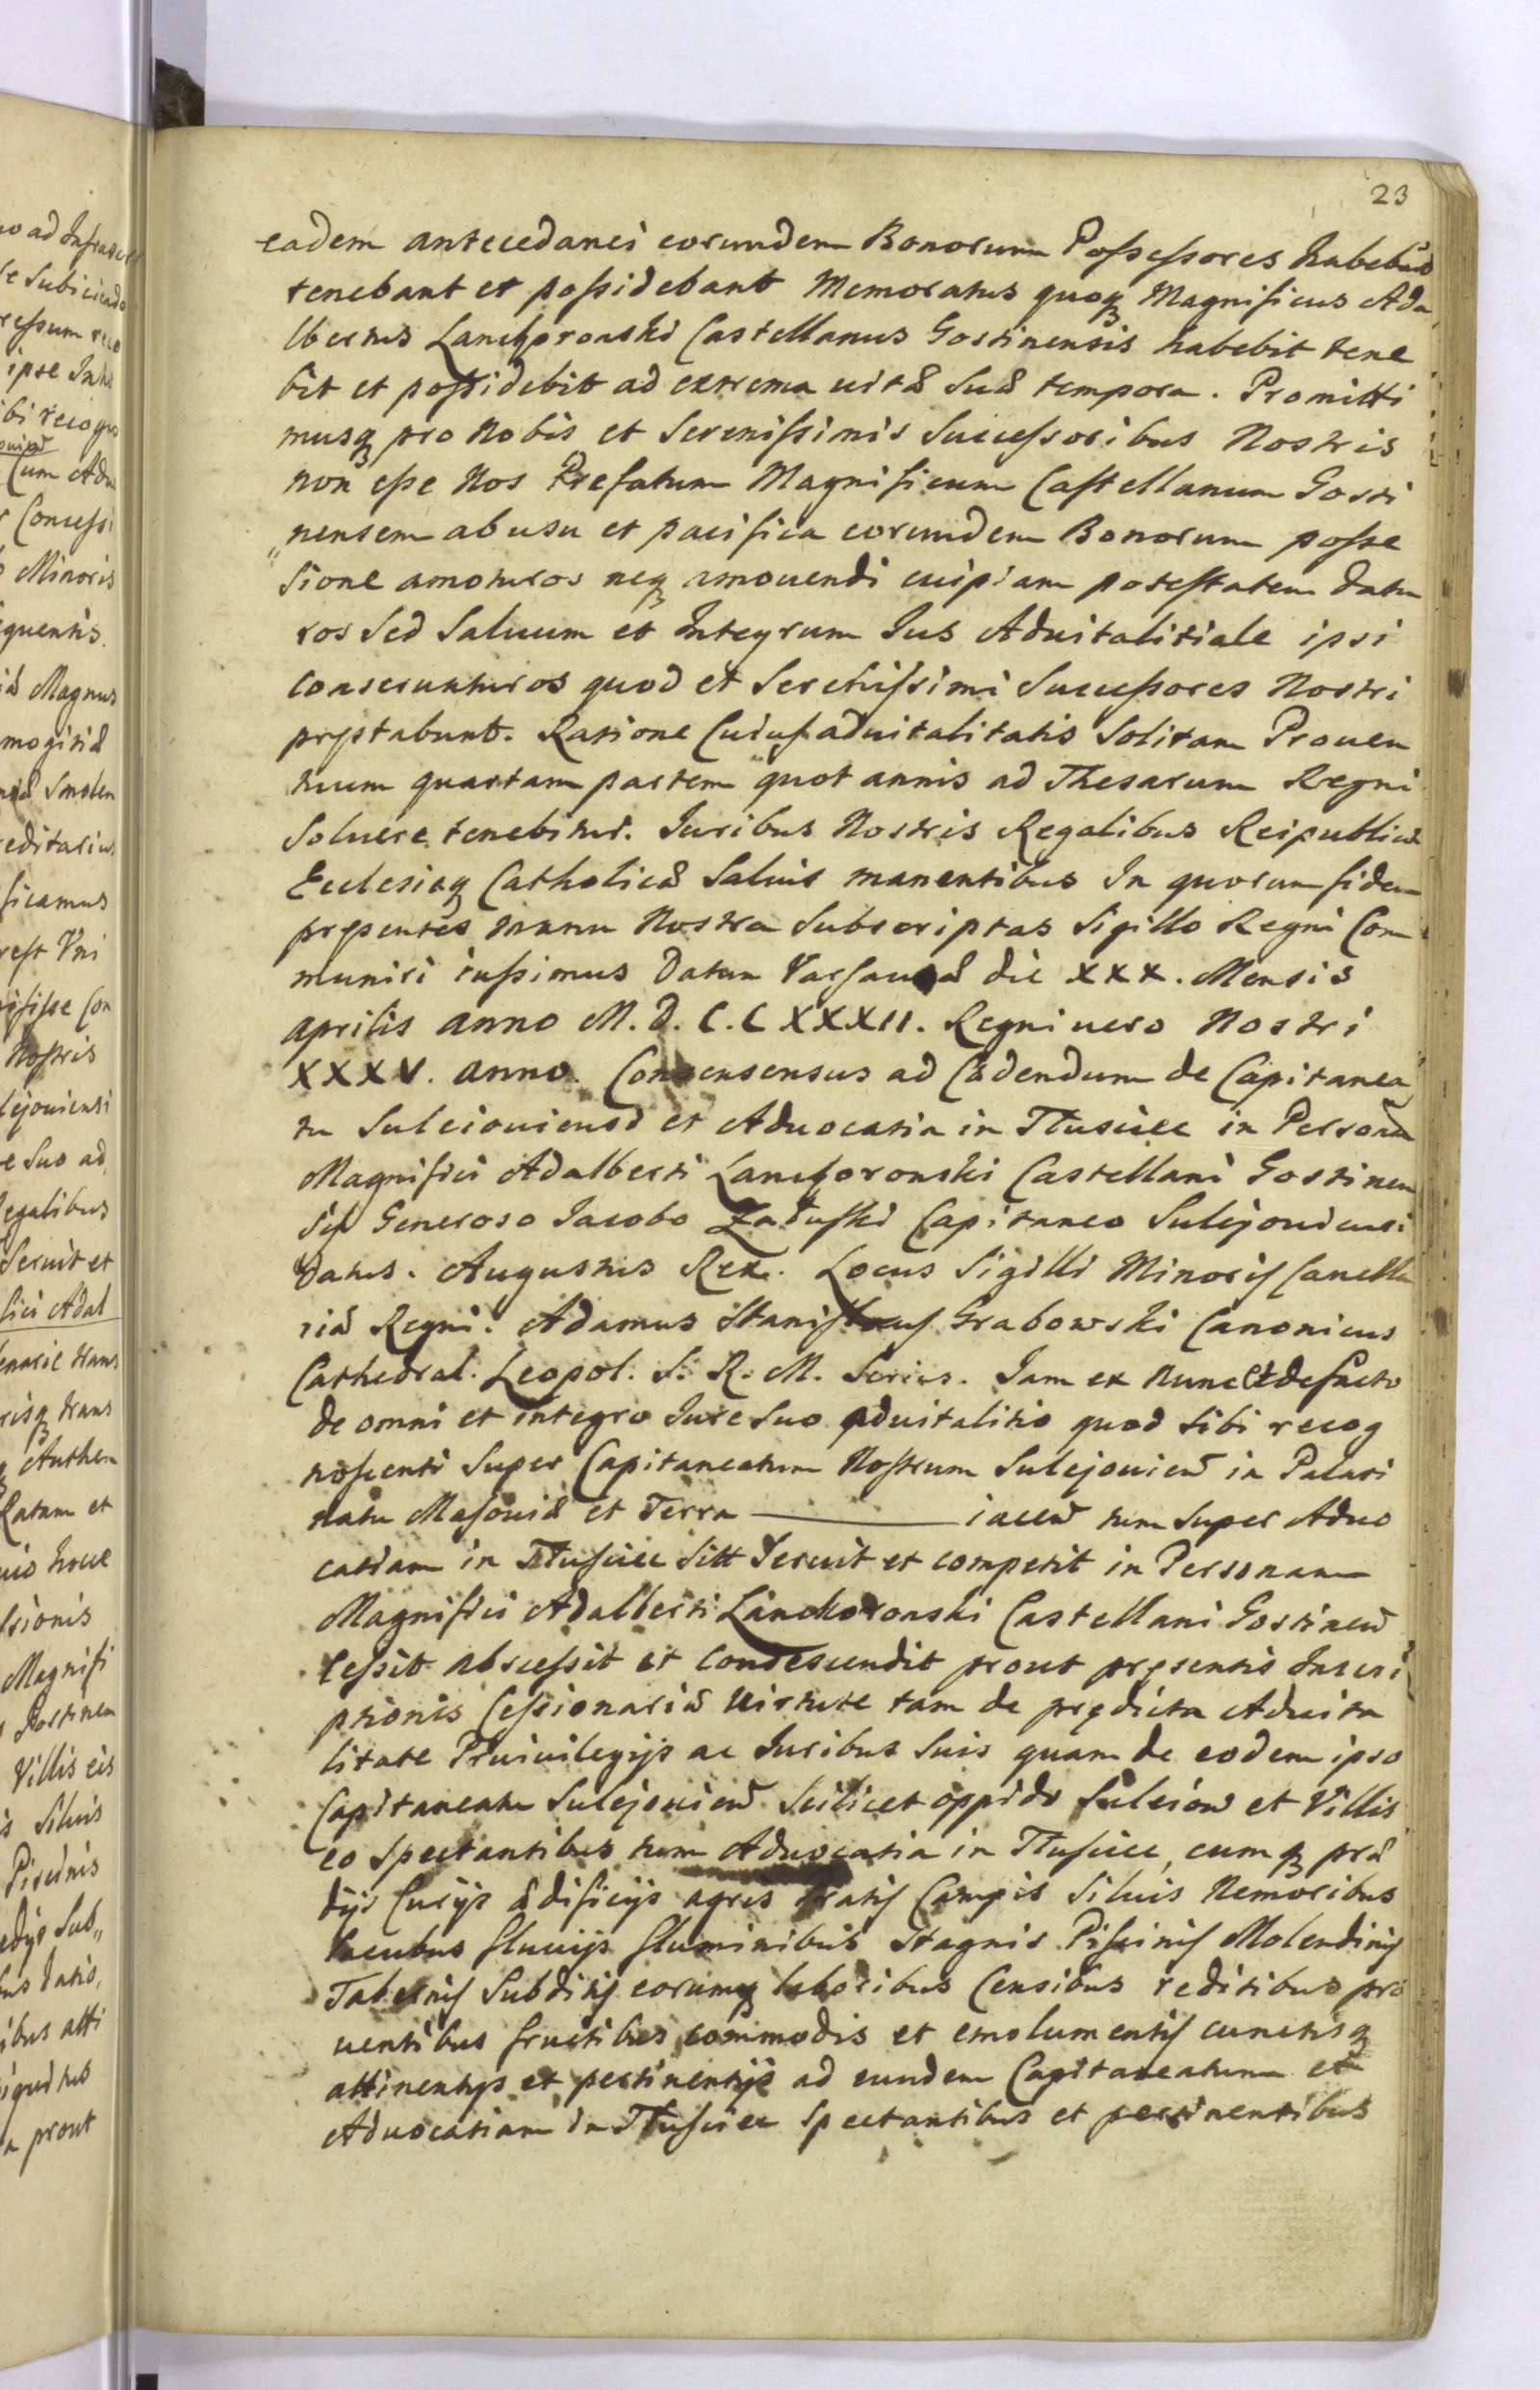 23
eadem antecedanei eorundem Bonorum Possessores habebant
tenebant et possidebant Memoratus quoq Magnificus Ada
lbertus Lanckoronski Castellanus Gostinensis habebit tene
bit et possidebit ad extrema uitæ suæ tempora. Promitti
musq pro Nobis et Serenissimis Successoribus Nostris
non esse Nos Prefatum Magnificum Castellanum Gosti
nensem ab usu et pacifica eorundem Bonorum posse
sione amoturos neq amouendi cuipiam potestatem datu
ros Sed Saluum et Integrum Jus Aduitalitiale ipsi
conseruaturos quod et Serenissimi Successores Nostri
pręstabunt. Ratione Cuius aduitalitatis Solitam Prouen
tuum quartam partem quot annis ad Thesarum Regni
Soluere tenebitur. Juribus Nostris Regalibus Reipublicæ
Ecclesiæq Catholicæ Saluis manentibus In quorum fidem
pręsentes manu Nostra Subscriptas Sigillo Regni Com
muniri iussimus Datum Varsauiæ die XXX. Mensis
aprilis anno M.D.C.C XXXII. Regni uero Nostri
XXXV. anno. Consensensus ad Cædendum de Capitanea
tu Suleiouiensi et Aduocatia in Tłuszcz in Personam
Magnifici Adalberti Lanckoronski Castellani Gostinen
sis Generoso Jacobo Załuski Capitaneo Sulejouiensi
Datus. Augustus Rex. Locus Sigilli Minoris Cancella
riæ Regni. Adamus Stanislaus Grabowski Canonicus
Cathedral. Leopol. S. R. M. Scrius. Jam ex Nunc et de facto
de omni et integro Jure Suo aduitalitio quod sibi recog
noscenti Super Capitaneatum Nostrum Sulejouien in Palati
natu Masouiæ et Terra iacen tum super Aduo
catiam in Tłuszcz Sitt Seruit et competit in Personam
Magnifici Adalberti Lanckoronski Castellani Gostinen
Cessit abscessit et Condescendit prout pręsentis Inscri
ptionis Cessionariæ uirtute tam de prędicta Aduita
litate Priuilegijs ac Juribus Suis quam de eodem ipso
Capitaneatu Sulejouien Scilicet oppido Suleiow et Villis
eo Spectantibus tum Aduocatia in Tłuszcz, cumq præ
dijs Curijs ædificijs agris Pratis Campis Siluis Nemoribus
Lacubus fluuijs fluminibus Stagnis Piscinis Molendinis
Tabernis Subditis eorumq laboribus Censibus reditibus pro
uentibus fructibus commodis et emolumentis cunctisq
attinentijs et pertinentijs ad eundem Capitaneatum et
Aduocatiam in Tłuszcz Spectantibus et pertinentibus